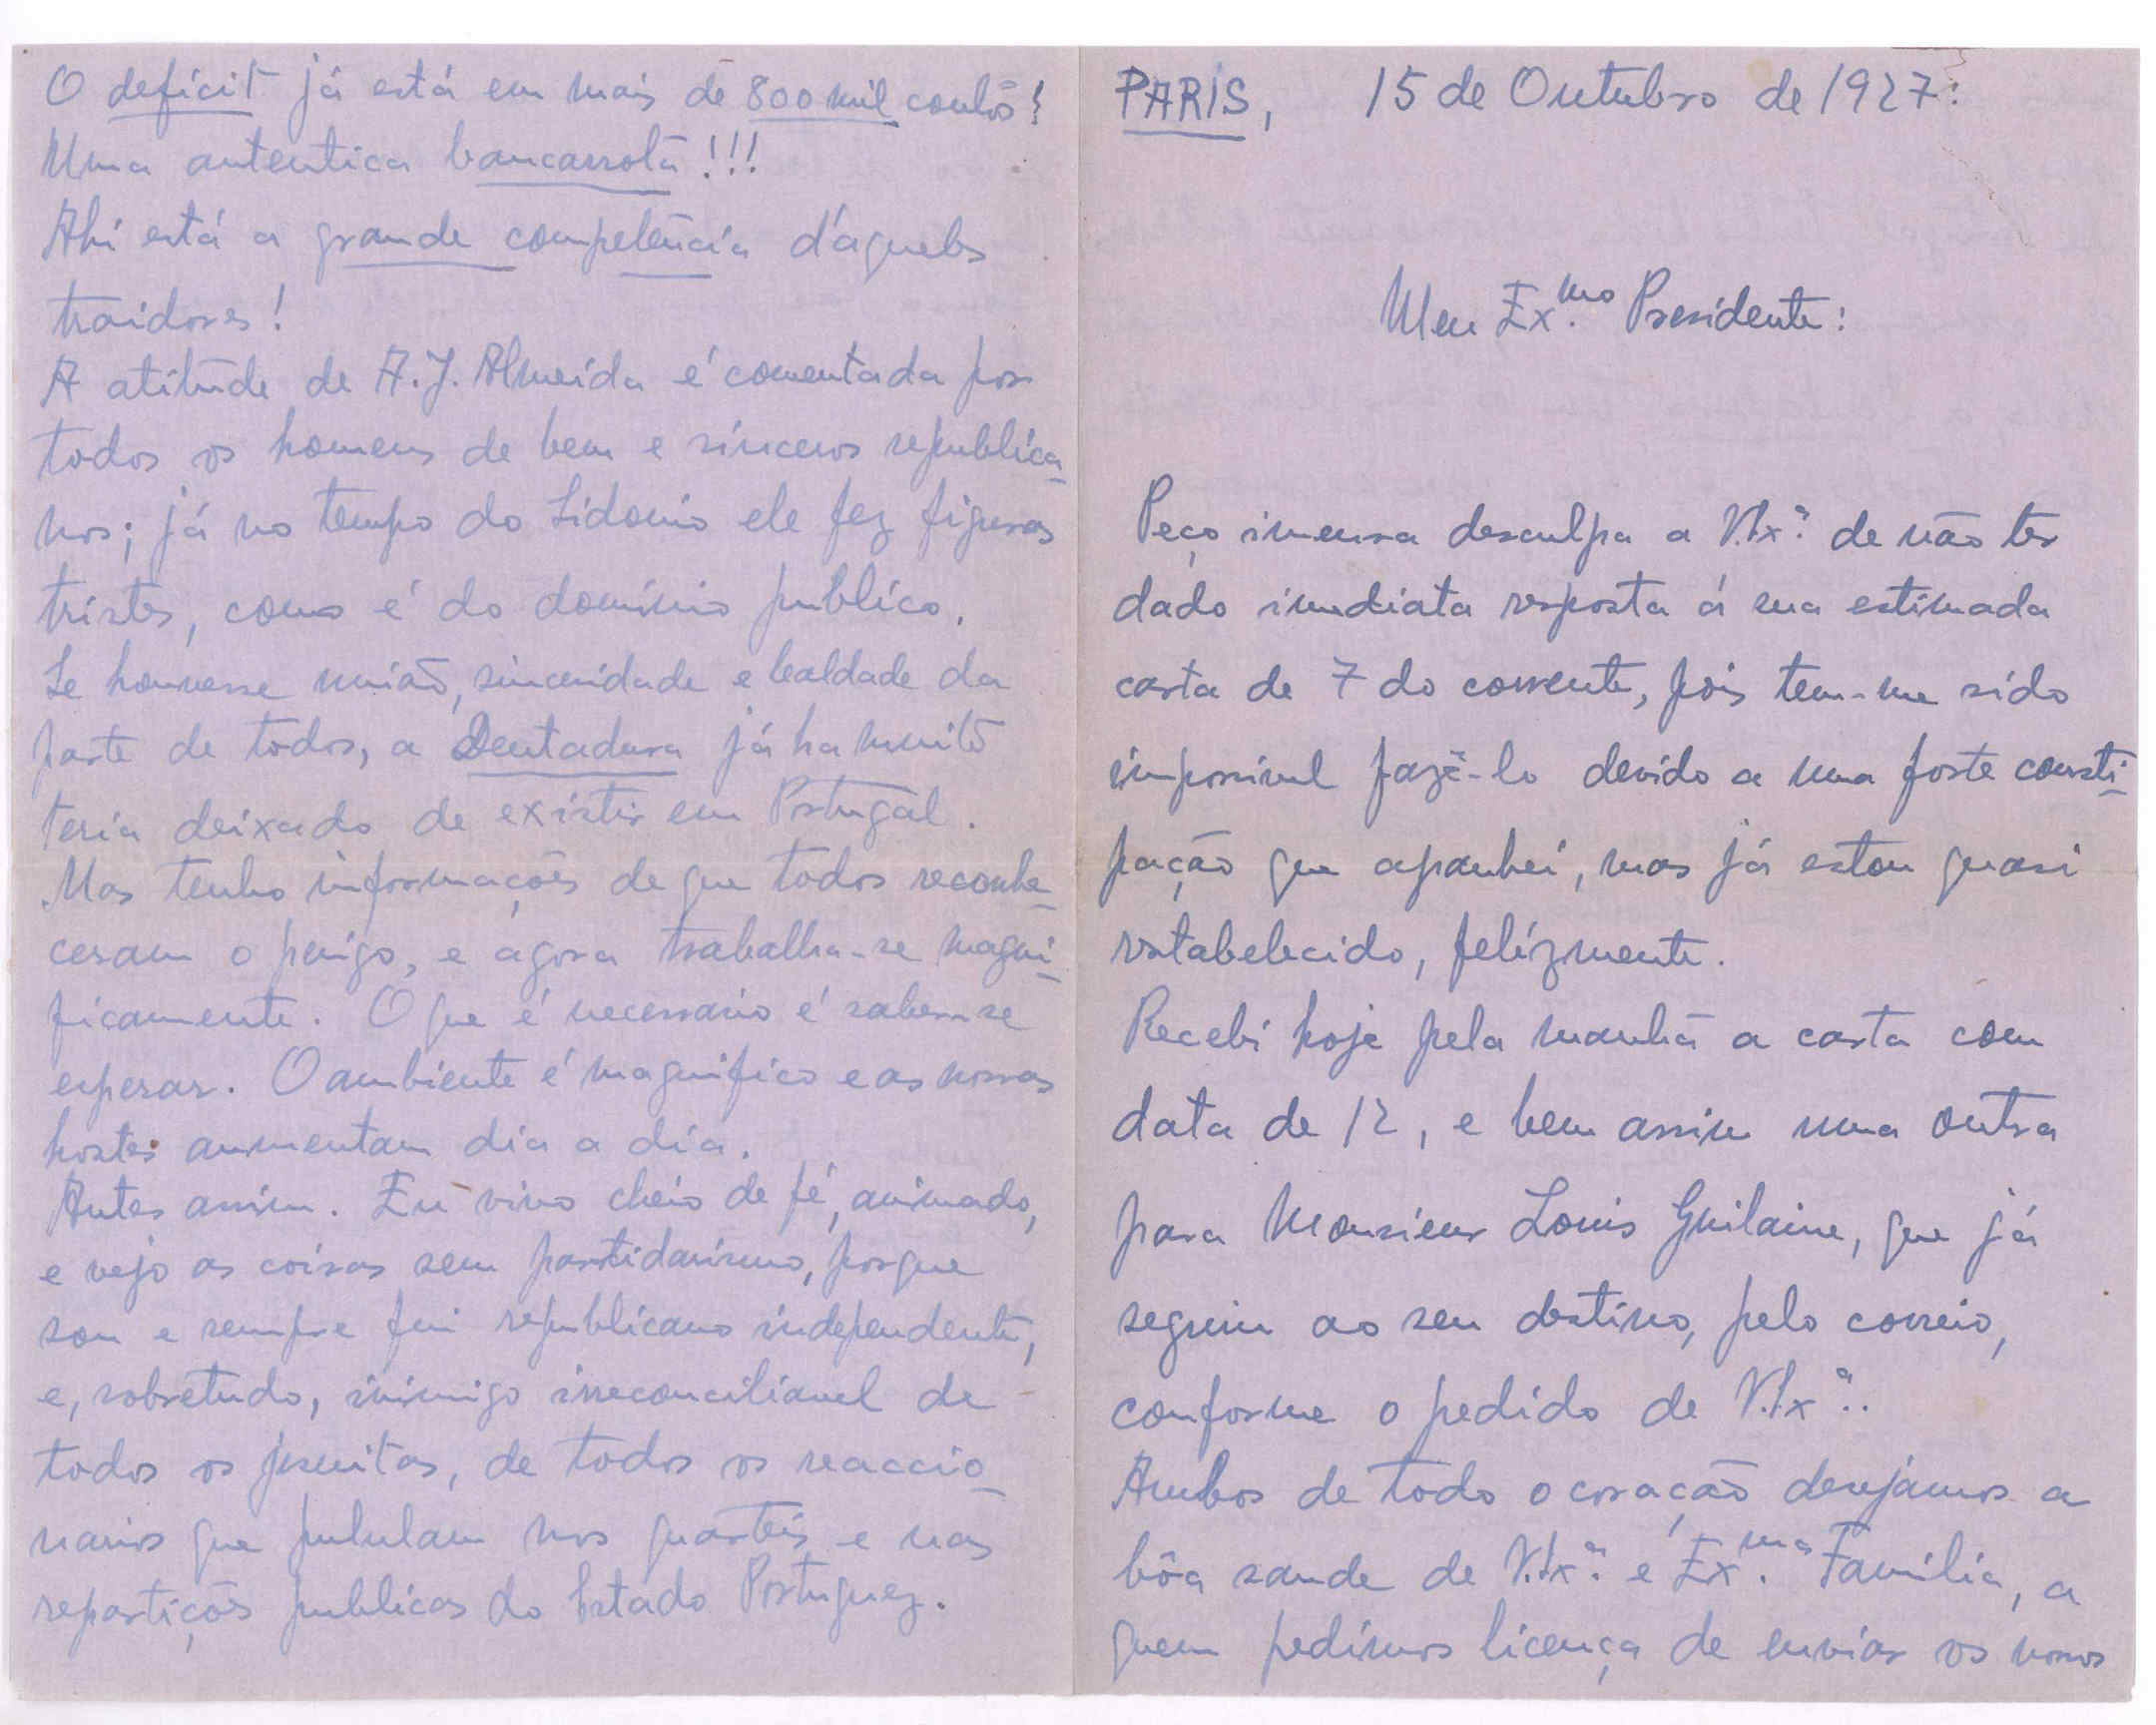 PARIS, 15 de Outubro de 1927:
Meu Ex.mo Presidente:
Peço imensa desculpa a V.Ex.ª de não ter
dado imediata resposta á sua estimada
carta de 7 do corrente, pois tem-me sido
impossivel fazê-lo devido a uma forte consti-
pação que apanhei, mas já estou quasi
restabelecido, felizmente.
Recebi hoje pela manhã a carta com
data de 12, e bem assim uma outra
para Monsieur Louis Guilaine, que já
seguiu ao seu destino, pelo correio,
conforme o pedido de V.Ex.ª.
Ambos de todo o coração desejamos a
bôa saude de V.Ex.ª e Ex.ma Familia, a
quem pedimos licença de enviar os nossos
O deficit já está em mais de 800 mil contos!
Uma autentica bancarrota!!!
Ahi está a grande competência d'aqueles
traidores!
A atitude de A.J. Almeida é comentada por
todos os homens de bem e sinceros republica-
nos; já no tempo do Sidonio ele fez figuras
tristes, como é do dominio publico.
Se houvesse união, sinceridade e lealdade da
parte de todos, a Dentadura já ha muito
teria deixado de existir em Portugal.
Mas tenho informações de que todos reconhe-
ceram o perigo, e agora trabalha-se magni-
ficamente. O que é necessario é saberem-se
esperar. O ambiente é magnifico e as nossas
hostes aumentam dia a dia.
Antes assim. Eu vivo cheio de fé, animado,
e vejo as coisas sem partidarismo, porque
sou e sempre fui republicano independente,
e, sobretudo, inimigo irreconciliavel de
todos os jesuitas, de todos os reaccio-
narios que pululam nos quarteis e nas
repartições publicas do Estado Portuguez.